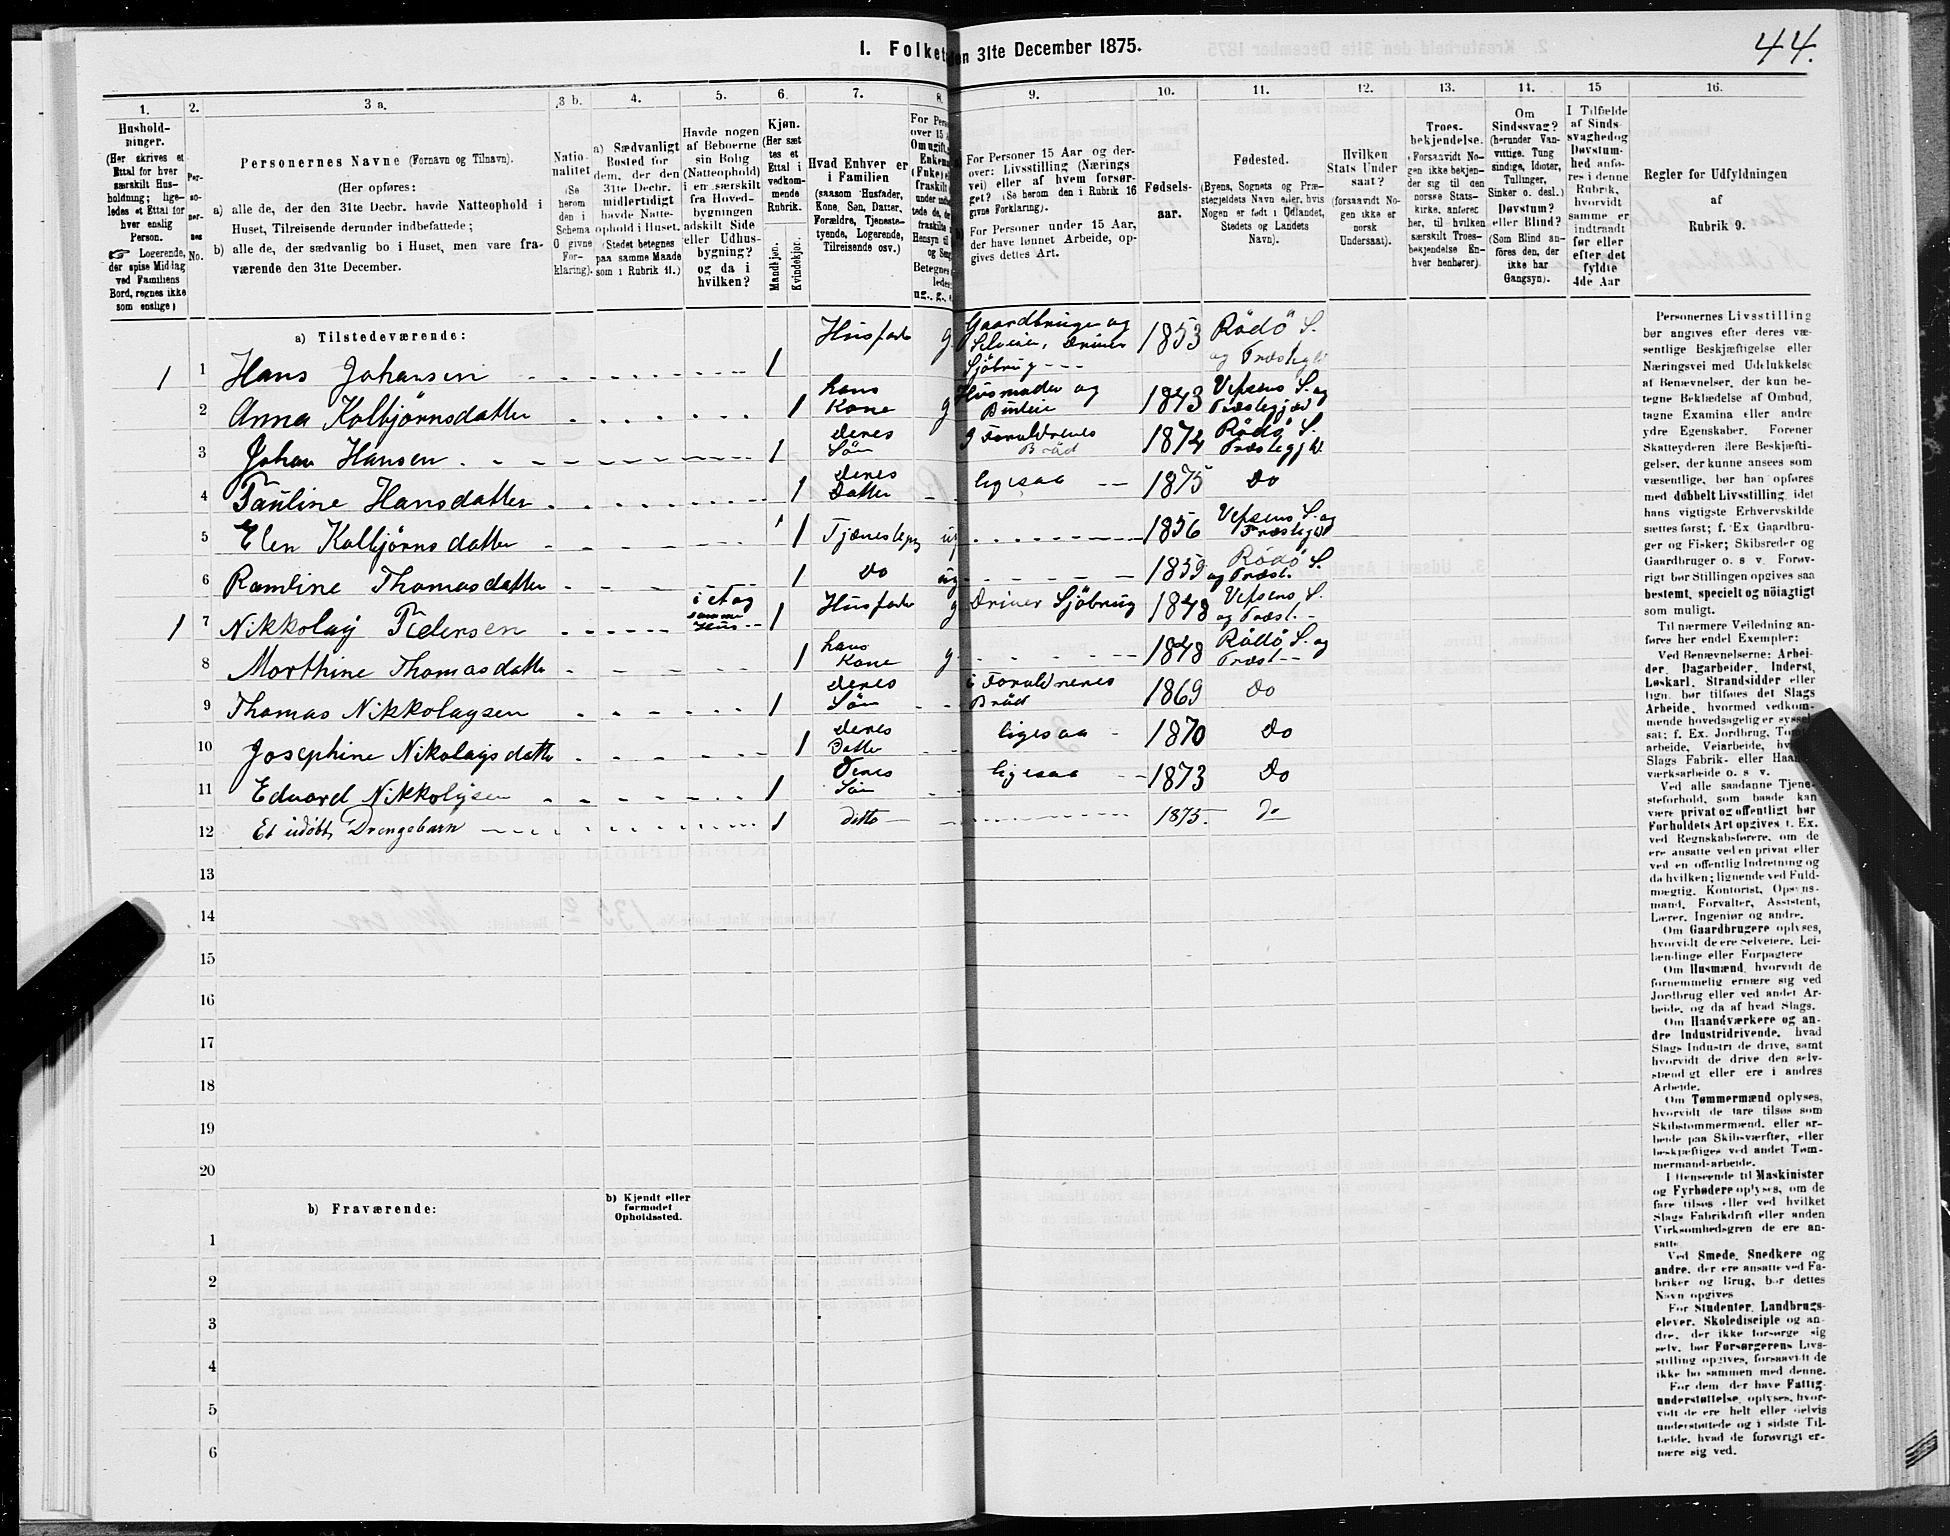 44.
I. Folket
den 31te December 1875.
1. 2. 3 a. 3 b. 4. 5. 6. 7. 8. 9. 10. 11. 12. 13. 14. 15 16.
Hushold-
ninger.
(Her skrives et
Ettal for hver
særskilt Hus-
holdning; lige-
ledes et Ettal for
hver enslig
Person.
☞ Logerende,
der spise Middag
ved Familiens
Bord, regnes ikke
som enslige)
Per-
so-
ner-
nes
No.
Personernes Navne (Fornavn og Tilnavn).
(Her opføres:
a) alle de, der den 31te Decbr. havde Natteophold i
Huset, Tilreisende derunder indbefattede;
b) alle de, der sædvanlig bo i Huset, men vare fra-
værende den 31te December.
Natio-
nalitet
(Se
herom
den i
Schema
O givne
For-
klaring).
a) Sædvanligt
Bosted for
dem, der den
31te Decbr.
midlertidigt
havde Natte-
ophold i Huset.
(Stedet betegnes
paa samme Maade
som i Rubrik 11.)
Havde nogen
af Beboerne
sin Bolig
(Natteophold)
i en særskilt
fra Hoved-
bygningen
adskilt Side
eller Udhus-
bygning?
og da i
hvilken?
Kjøn.
(Her sæt
tes et
Ettal i
vedkom-
mende
Rubrik.
Mandkjøn.
Kvindekjøn.
Hvad Enhver er
i Familien
(saasom Husfader,
Kone, Søn, Datter,
Forældre, Tjeneste-
tyende, Logerende,
Tilreisende osv.)
For Pers
over 15 A
Om ugift,
Enkem
(Enke)
fraskilt
Betegnes
ledes
ug., g.,
For Personer 15 Aar og der-
over: Livsstilling (Nærings
vei) eller af hvem forsør-
get? (Se herom den i Rubrik 16
givne Forklaring).
For Personer under 15 Aar,
der have lønnet Arbeide, op-
gives dettes Art.
Fødsels-
aar.
Fødested.
(Byens, Sognets og Præ-
stegjeldets Navn eller, hvis
Nogen er født i Udlandet,
Stedets og Landets
Navn).
Hvilken
Stats Under
saat?
(forsaavidt No-
gen ikke er
norsk
Undersaat).
Troes-
bekjendelse.
(Forsaavidt No-
gen ikke bekjen-
der sig til den
norske Stats-
kirke, anføres
her, til hvilken
særskilt Troes-
bekjendelse En-
hver henhører).
Om
Sindssvag?
(herunder Van-
vittige, Tung
sindige, Idioter,
Tullinger,
Sinker o. desl.)
Døvstum?
eller Blind?
(Som Blind an-
føres den, der
ikke har
Gangsyn).
I Tilfælde
af Sinds-
svaghed og
Døvstum-
hed anfø-
res i denne
Rubrik,
hvorvidt
samme er
indtraadt
før eller
efter det
fyldte
4de Aar
Regler for Udfyldningen
af
Rubrik 9.
a) Tilstedeværende:
1 1 Hans Johansen 1 Husfader g. Gaardbruger og Selveier, driver Sjöbrug 1853 Rödö S. og Præstegjd
2 Anna Kolbjörnsdatter 1 hans Kone g Husmoder og 1843 Vefsens S. og Præstegjæld
3 Johan Hansen 1 deres Sön i Forældrenes Bröd 1874 Rödö S. Præstegjld.
4 Pauline Hansdatter 1 deres Datter ligesaa 1875 do
5 Elen Kolbjörnsdatter 1 Tjenestepig ug 1856 Vefsens S. og Præstegjld
6 Ramline Thomasdatter 1 do ug 1859 Rödö S. og Præst.
1 7 Nikkolay Pedersen i et og samme Hus 1 Husfader g driver Sjöbrug 1848 Vefsens S. og Præst.
8 Morthine Thomasdatte 1 hans Kone g 1848 Rödö S. og Præst
9 Thomas Nikkolaysen 1 deres Sön i Forældrenes Bröd 1869 do
10 Josephine Nikolaysdatte 1 deres Datter ligesaa 1870 do
11 Edvard Nikkolysen 1 deres Sön ligesaa 1873 do
12 Et udöbt Drengebarn 1 ditto 1875. do
13
14
15
16
17
18
19
20
b) Fraværende:
b) Kjendt eller
formodet
Opholdssted.
1
2
3
4
5
6
Personernes Livsstilling
bør angives efter deres væ-
sentlige Beskjæftigelse eller
Næringsvei med Udelukkelse
af Benævnelser, der kun be-
tegne Beklædelse af Ombud,
tagne Examina eller andre
ydre Egenskaber. Forener
Skatteyderen flere Beskjæfti-
gelser, der kunne ansees som
væsentlige, bør han opføres
med dobbelt Livsstilling, idet
hans vigtigste Erhvervskilde
sættes først; f. Ex Gaardbru-
ger og Fisker; Skibsreder og
Gaardbruger o. s v. Forøv-
rigt bør Stillingen opgives saa
bestemt, specielt og nöiagtigt
som muligt.
Til nærmere Veiledning an-
føres her endel Exempler:
Ved Benævnelserne: Arbei-
der, Dagarbeider, Inderst,
Løskarl, Strandsidder eller
lign. bør tilføies det Slags
Arbeide, hvormed vedkom-
mende hovedsagelig er syssel
sat; f. Ex. Jordbrug, Tomt
arbeide, Veiarbeide, hv
Slags Fabrik- eller Haan
værksarbeide o. s v.
Ved alle saadanne Tjene-
steforhold, som baade kan
være privat og offentligt bør
Forholdets Art opgives, f. Ex.
ved Regnskabsførere, om de
ere ansatte ved en privat eller
ved en offentlig Indretning og
da hvilken; lignende ved Fuld-
mægtig, Kontorist, Opsyns-
mand, Forvalter, Assistent,
Lærer, Ingeniør og andre.
Om Gaardbrugere oplyses,
hvorvidt de ere Selveiere, Lei-
lændinge eller Forpagtere
Om Husmænd, hvorvidt de
fornemmelig ernære sig ved
Jordbrug eller ved andet Ar-
beide, og da af hvad Slags.
Om Haandværkere og an-
dre Industridrivende, hvad
Slags Industri de drive, samt
hvorvidt de drive den selv-
stændigt eller ere i andres
Arbeide.
Om Tømmermænd oplyses,
hvorvidt de fare tilsøs som
Skibstømmermænd, eller ar-
beide paa Skibsværfter, eller
beskjæftiges ved andet Tøm-
mermandarbeide.
I Henseende til Maskinister
og Fyrbødere oplyses, om de
fare tilsøs eller ved hvilket
Slags Fabrikdrift eller anden
Virksomhedsgren de ere an-
satte
Ved Smede, Snedkere og
andre, der ere ansatte ved Fa-
briker og Brug, bør dettes
Navn opgives
For Studenter, Landbrugs-
elever, Skoledisciple og an-
dre, der ikke forsørge sig
selv, bør Forsørgerens Livs-
stilling opgives, forsaavidt de
ikke bo sammen med denne.
For dem, der have Fattig-
understøttelse, oplyses, hvor-
vidt de ere helt eller delvis
understøttede og i sidste Til-
fælde, hvad de forøvrigt er-
nære sig ved.